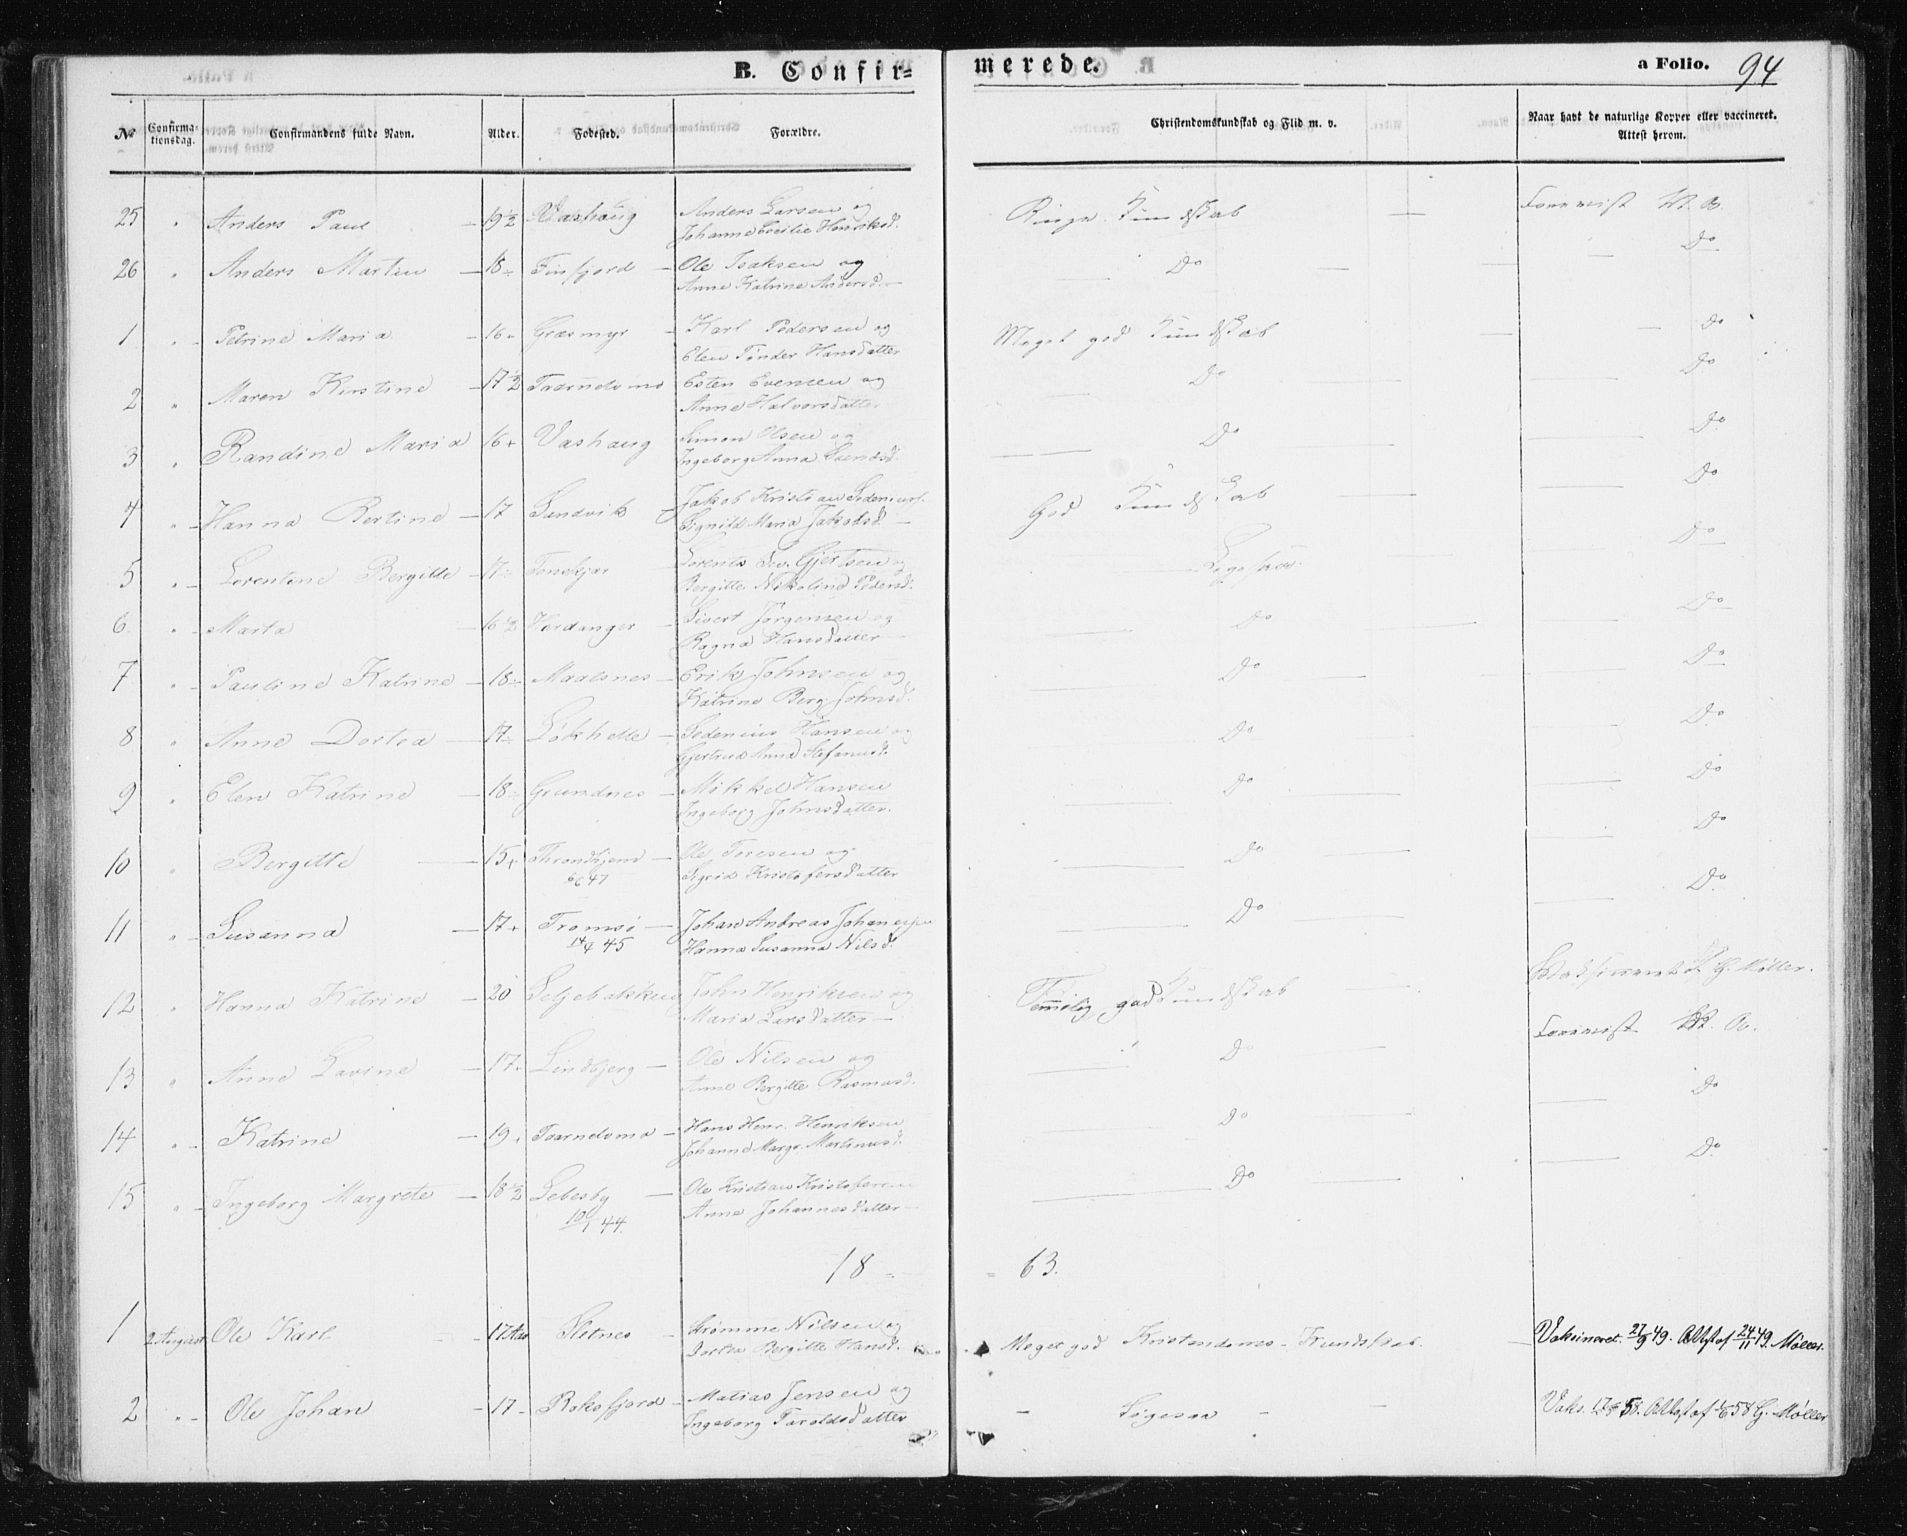 B. Confir=
merede.
a Folio. 94
No
Confirma-
tionsdag.
Confirmandens fulde Navn.
Alder.
Fødested.
Forældre.
Christendomskundskab og Flid m. v.
Naar havt de naturlige Kopper eller vaccineret.
Attest herom.
25 " Anders Paul 19½ Vashaug Anders Larsen og
Johanne Cecilie Henriksd. Ringe Kundskab Forevist V. A.
26 " Anders Martin 18 Finfjord Ole Isaksen og
Anne Katrine Andersd. Do Do
1 " Petrine Maria 16 Græsmyr Karl Pedersen og
Elen Tønder Hansdatter Meget god Kundskab Do
2 " Maren Kirstine 17½ Esten Evensen og
Anne Halvorsdatter Do Do
3 " Randine Maria 16 Vashaug Simon Olsen og
Ingeborg Anna Do Do
4 " Hanna Bertine 17 Sandvik Jakob Kristian
Signild Maria Jakobsd. God Kundskab Do
5 " Lorentine Bergitte 17 Lorents Sev. Gjertsen og
Bergitte Nikoline Pedersd. Ligesaa. Do
6 " Marta 16½ Hardanger Sivert Jørgensen og
Ragna Hansdatter Do Do
7 " Pauline Katrine 18 Maalsnes Erik Johnsen og
Katrine Berg. Johnsd. Do Do
8 " Anne Dortea 17 Løkhelle Sedenius Hansen og
Gjertrud Anna Stefanusd. Do Do
9 " Elen Katrine 18 Grundnes Mikkel Hansen
Ingeborg Johnsdatter. Do Do
10 " Bergitte 15 Throndhjem Ole Toresen og
47 Sigrid Kristofersdatter Do Do
11 " Susanna 17 Tromsø Johan Andreas Johannesen
14/4 45 Hanna Susanna Nilsd. Do Do
12 " Hanna Katrine 20 Seljebakken John Henriksen og
Maria Larsdatter Temmelig god Kundskab G. Møller.
13 " Anne Lavine 17 Lindbjerg Ole Nilsen og
Anne Bergitte Rasmusd. Do Forevist V. A.
14 " Katrine 19 Hans Henr. Henriksen
Johanne Margr. Martinusd. Do Do
15 " Ingeborg Margrete 18½ Lebesby Ole Kristian Kristofersen
10/1 44. Anne Johannesdatter Do Do
18 63.
1 2 August Ole Karl 17 Aar Sletnes Strømme Nilsen og
Dortea Bergitte Hansd. Meget god Kristendoms-Kundskab. Vaksineret 27/9 49. Attest af 24/11 49. Møller.
2 " Ole Johan 17 Roksfjord Matias Jensen og
Ingeborg Taraldsdatter Ligesaa Vaks. Attest af 58 G. Møller